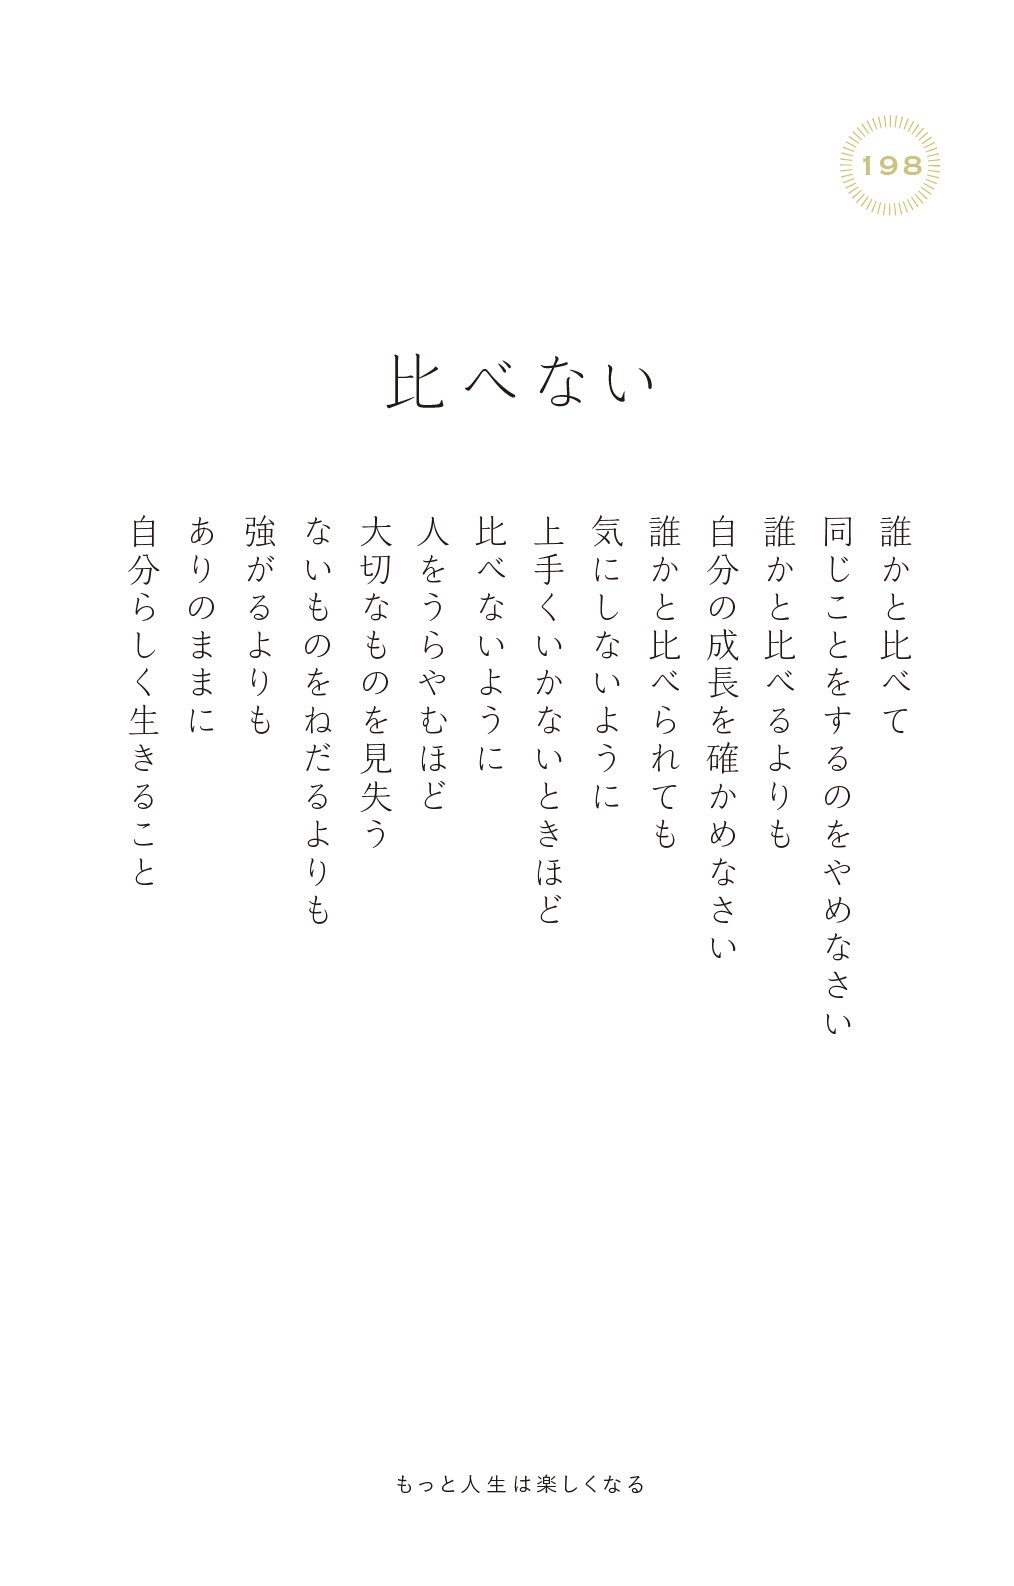 198
比べない
誰かと比べて
同じことをするのをやめなさい
誰かと比べるよりも
自分の成長を確かめなさい
誰かと比べられても
気にしないように
上手くいかないときほど
比べないように
人をうらやむほど
大切なものを見失う
ないものをねだるよりも
強がるよりも
ありのままに
自分らしく生きること
もっと人生は楽しくなる